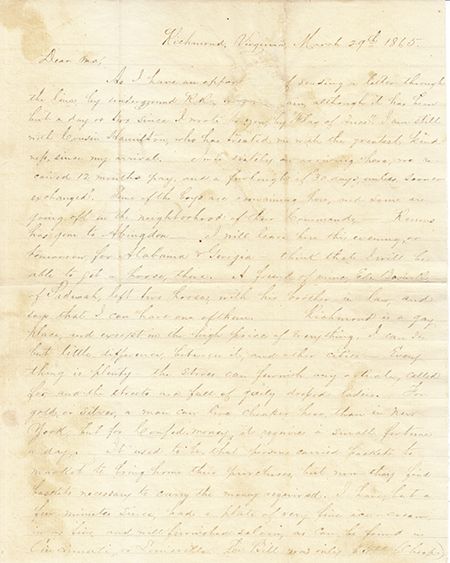 Richmond, Virginia, March 29th 1865.
Dear Ma,
As I have an of sending a letter through
the lines by underground R.R. again, although it has been
but a day or two since I wrote to you, by Flag of Truce. I am still
with Cousin Hamilton, who has treated me with the greatest kind-
ness, since my arrival. arriving here, we re-
ceived 12 months pay, and a furlough of 30 days, unless sooner
exchanged. Some of the boys are remaining here, and some are
going off in the neighborhood of their Commands
has gone to Abingdon I will leave here this evening, or
tomorrow for Alabama & Georgia think that I will be
able to get a horse, there. A friend of mine,
of Paducah, left two horses, with his brother in law, and
says that I can have one of them. Richmond is a gay
place, and except in the high price of everything, I can see
but little difference, between it, and other cities Every
thing is plenty the stores can furnish any article, called
for and the streets are full of gaily dressed ladies. For
gold, or silver, a man can live cheaper here than in New
York, but for Confed. money, it requires a small fortune
a day. It used to be that persons carried baskets to
market to bring home their purchases, but now they find
baskets necessary to carry the money required. I have, but a
few minutes since, had a plate of very fine ice-cream,
in as fine, and well furnished saloon, as can be found in
Cincinnati, or Louisville. The Bill was only